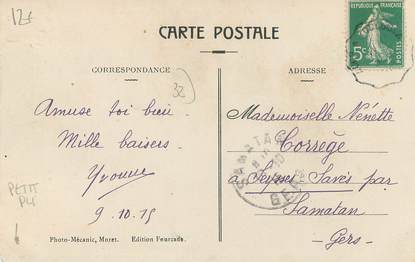 12€
CARTE POSTALE
RÉPUBLIQUE FRANÇAISE
5c
POSTES
CORRESPONDANCE
ADRESSE
32
Amuse toi bien
Mille baisers
Yvonne
9.10.15
Mademoiselle Nénette
Corrège
à Savès par
Samatan
Gers
SAMATAN
GERS
PETIT
PLI
Photo-Mécanic, Moret. Edition Fourcade.